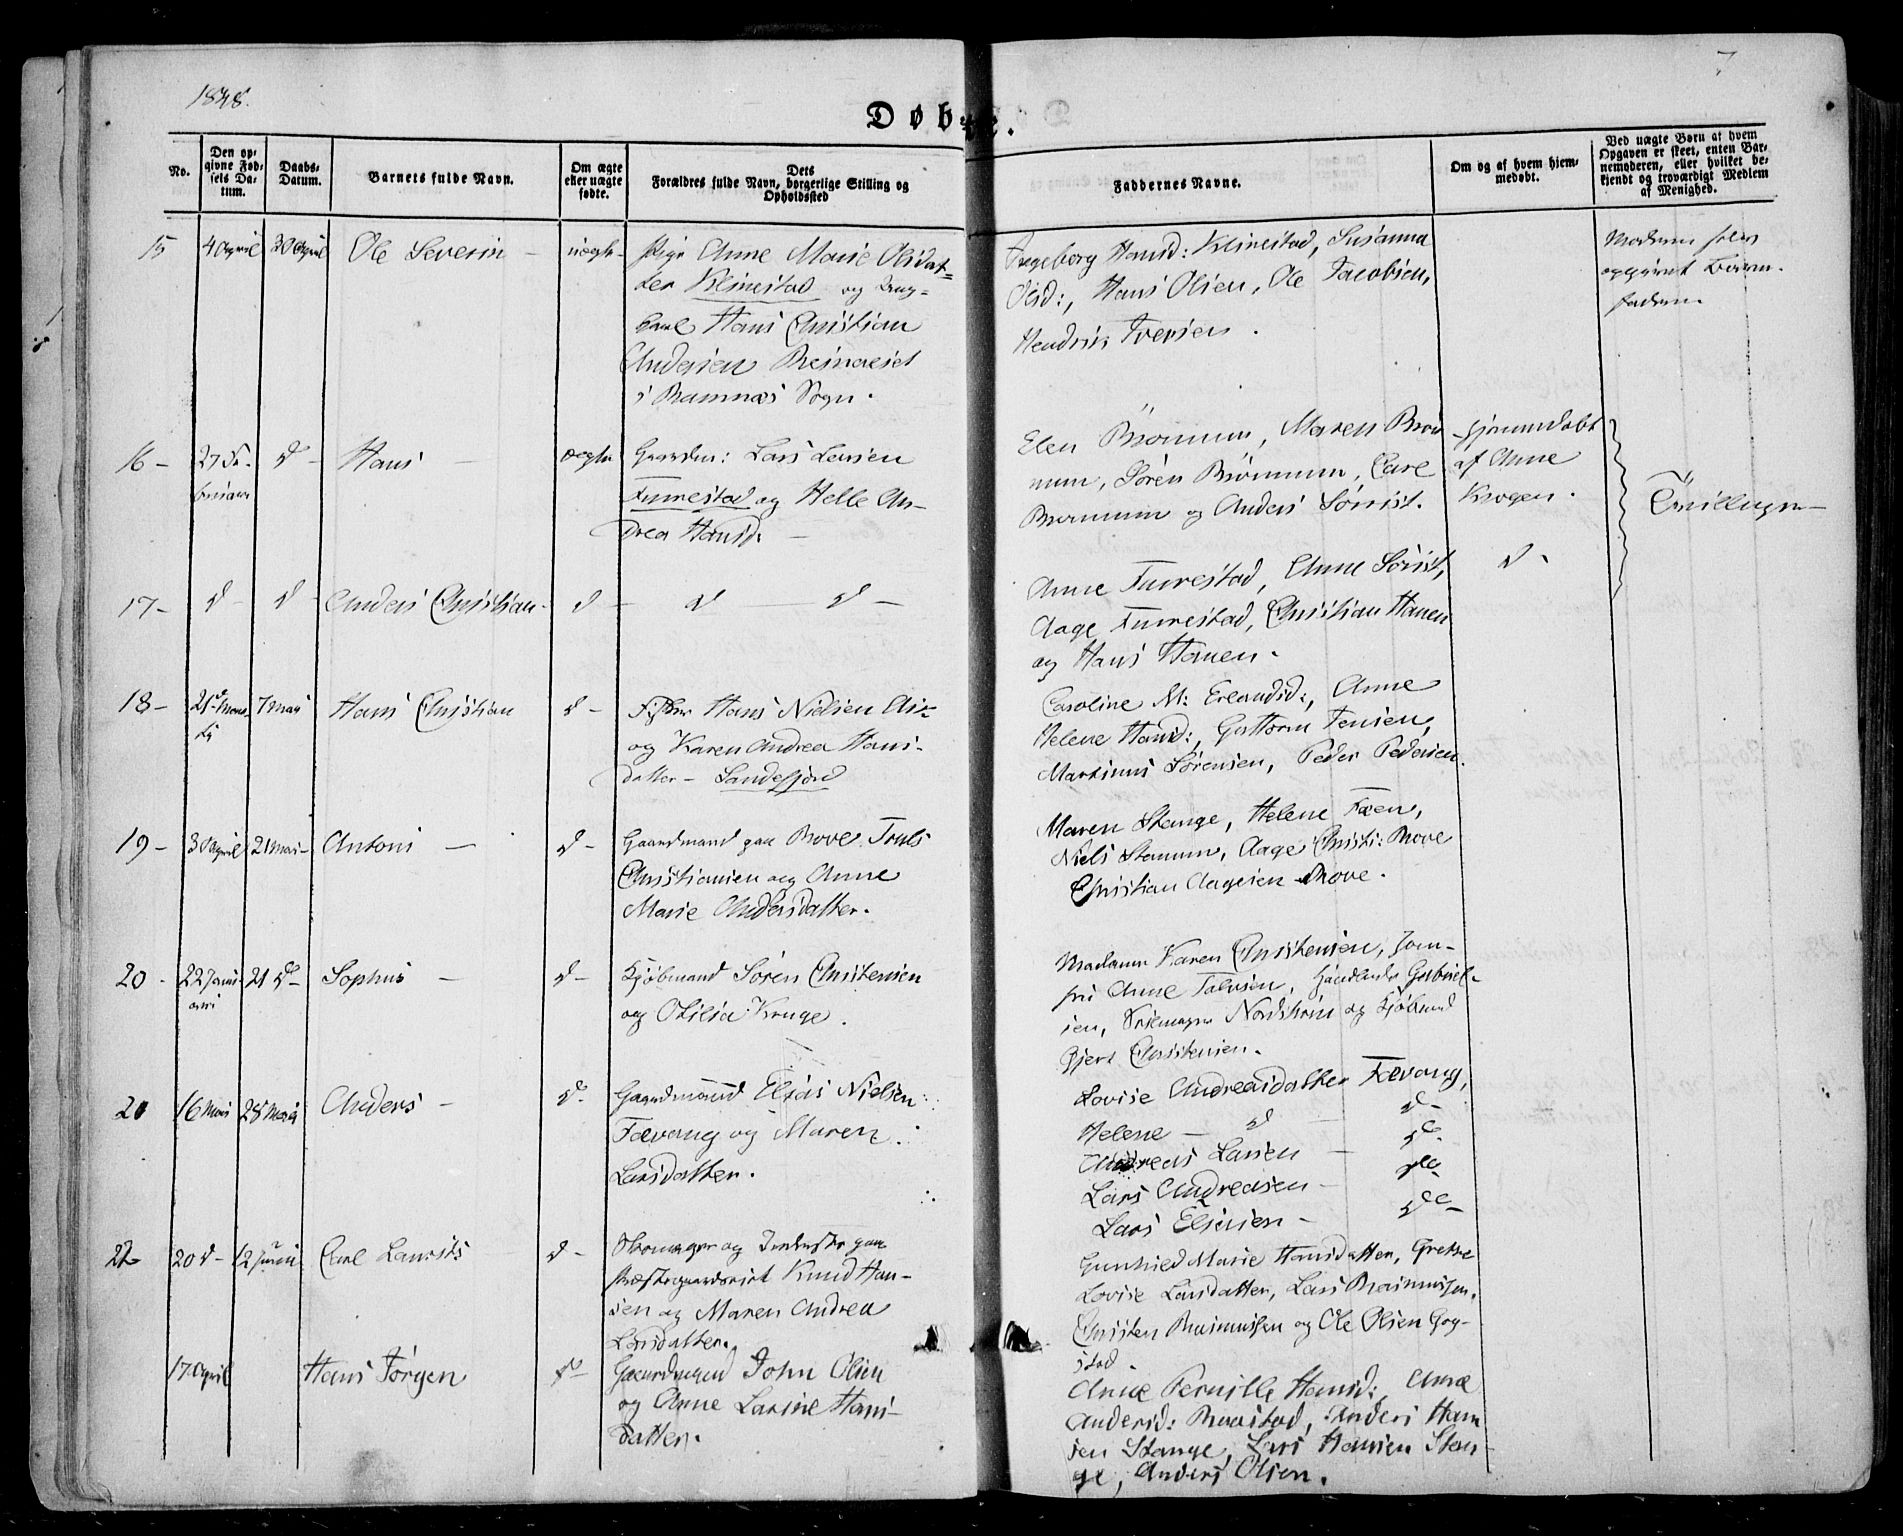 1848.
7
Døbte.
No.
Den op-
givne Fød-
sels Da-
tum.
Daabs-
Datum.
Barnets fulde Navn.
Om ægte
eller uægte
fødte.
Dets
Forældres fulde Navn, borgerlige Stilling og
Opholdssted
Faddernes Navne.
Om og af hvem hjem-
medøbt.
Ved uægte Børn at hvem
Opgaven er skeet, enten Bar-
nemoderen, eller hvilket be-
kjendt og troværdigt Medlem
af Menighed.
15 4 April 30 April Ole Severin - uægte
Pige Anne Marie Olsdat-
ter Klinestad og Ung-
karl Hans Christian
Andersen
i Ramnæs Sogn.
Ingeborg Hansd: Klinestad, Susanna
Olsd:, Hans Olsen, Ole Jacobsen,
Hendrik Iversen.
Moderen selv
opgivet Barne-
faderen
16 - 27 Fe-
bruar
d - Hans - ægte
Gaardm: Lars Larsen
Furrestad og Helle An-
drea Hansd. -
Elen Brømnum, Maren Bröm
num, Søren Brömnum, Carl
Brømnum og Anders Sörist.
Hjemmedøbt
af Anne
Krogen.
Tvillinger
17 - d - d - Anders Christian - d - d - d -
Anne Furrestad, Anne Sörist,
Aage Furrestad, Christian Hauen
og Hans Hauen.
d -
18 - 21de Marts 7 Mai Hans Christian d -
Fisker Hans Nielsen
og Karen Andrea Hans-
datter - Sandefjord
Caroline M: Erlandsd:, Anne
Helene Hansd:, Guttorm Jensen,
Martinus Sørensen, Peder Pedersen.
19 - 30 April 21 Mai - Antoni - d -
Gaardmand paa Rove Truls
Christiansen og Anne
Marie Andersdatter.
Maren Stange, Helene Fæen,
Niels Stamnum, Aage Christi: Rove
Christian Aagesen Rove.
20 - 22 Janu-
ari
21 d - Sophus - d -
Kjöbmand Sören Christensen
og Otilia Kruge.
Madame Karen Christensen, Jom-
fru Anne Gabriel-
sen, og Kjöbmd
Christensen.
21 16 Mai 28 Mai Anders - d -
Gaardmand Elias Nielsen
Fævang og Maren
Larsdatter.
Lovise Andreasdatter Fævang,
Helene - d - d -
Andreas Larsen - do -
Lars Andreasen - do -
Lars Eliasen - do -
22 20 d - 12 Juni Carl Laurits d -
Skomager og Inderste paa
Præstegaardseiet Knud Han-
sen og Maren Andrea
Larsdatter.
Gunhild Marie Hansdatter, Grethe
Lovise Larsdatter, Lars Rasmussen,
Christen Rasmussen og Ole Olsen Gog-
stad.
17 April Hans Jörgen d -
Gaardmand John Olsen
og Anne Larine Hans-
datter.
Anne Pernille Hansd:, Anne
Andersd: Raastad, Anders Han
sen Stange, Lars Hansen Stan-
ge, Anders Olsen.